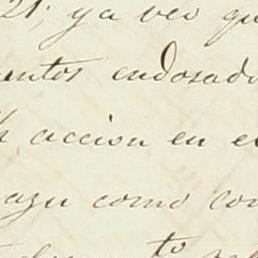 21; ya veo qu
entos endosado
acción en e
como con
to